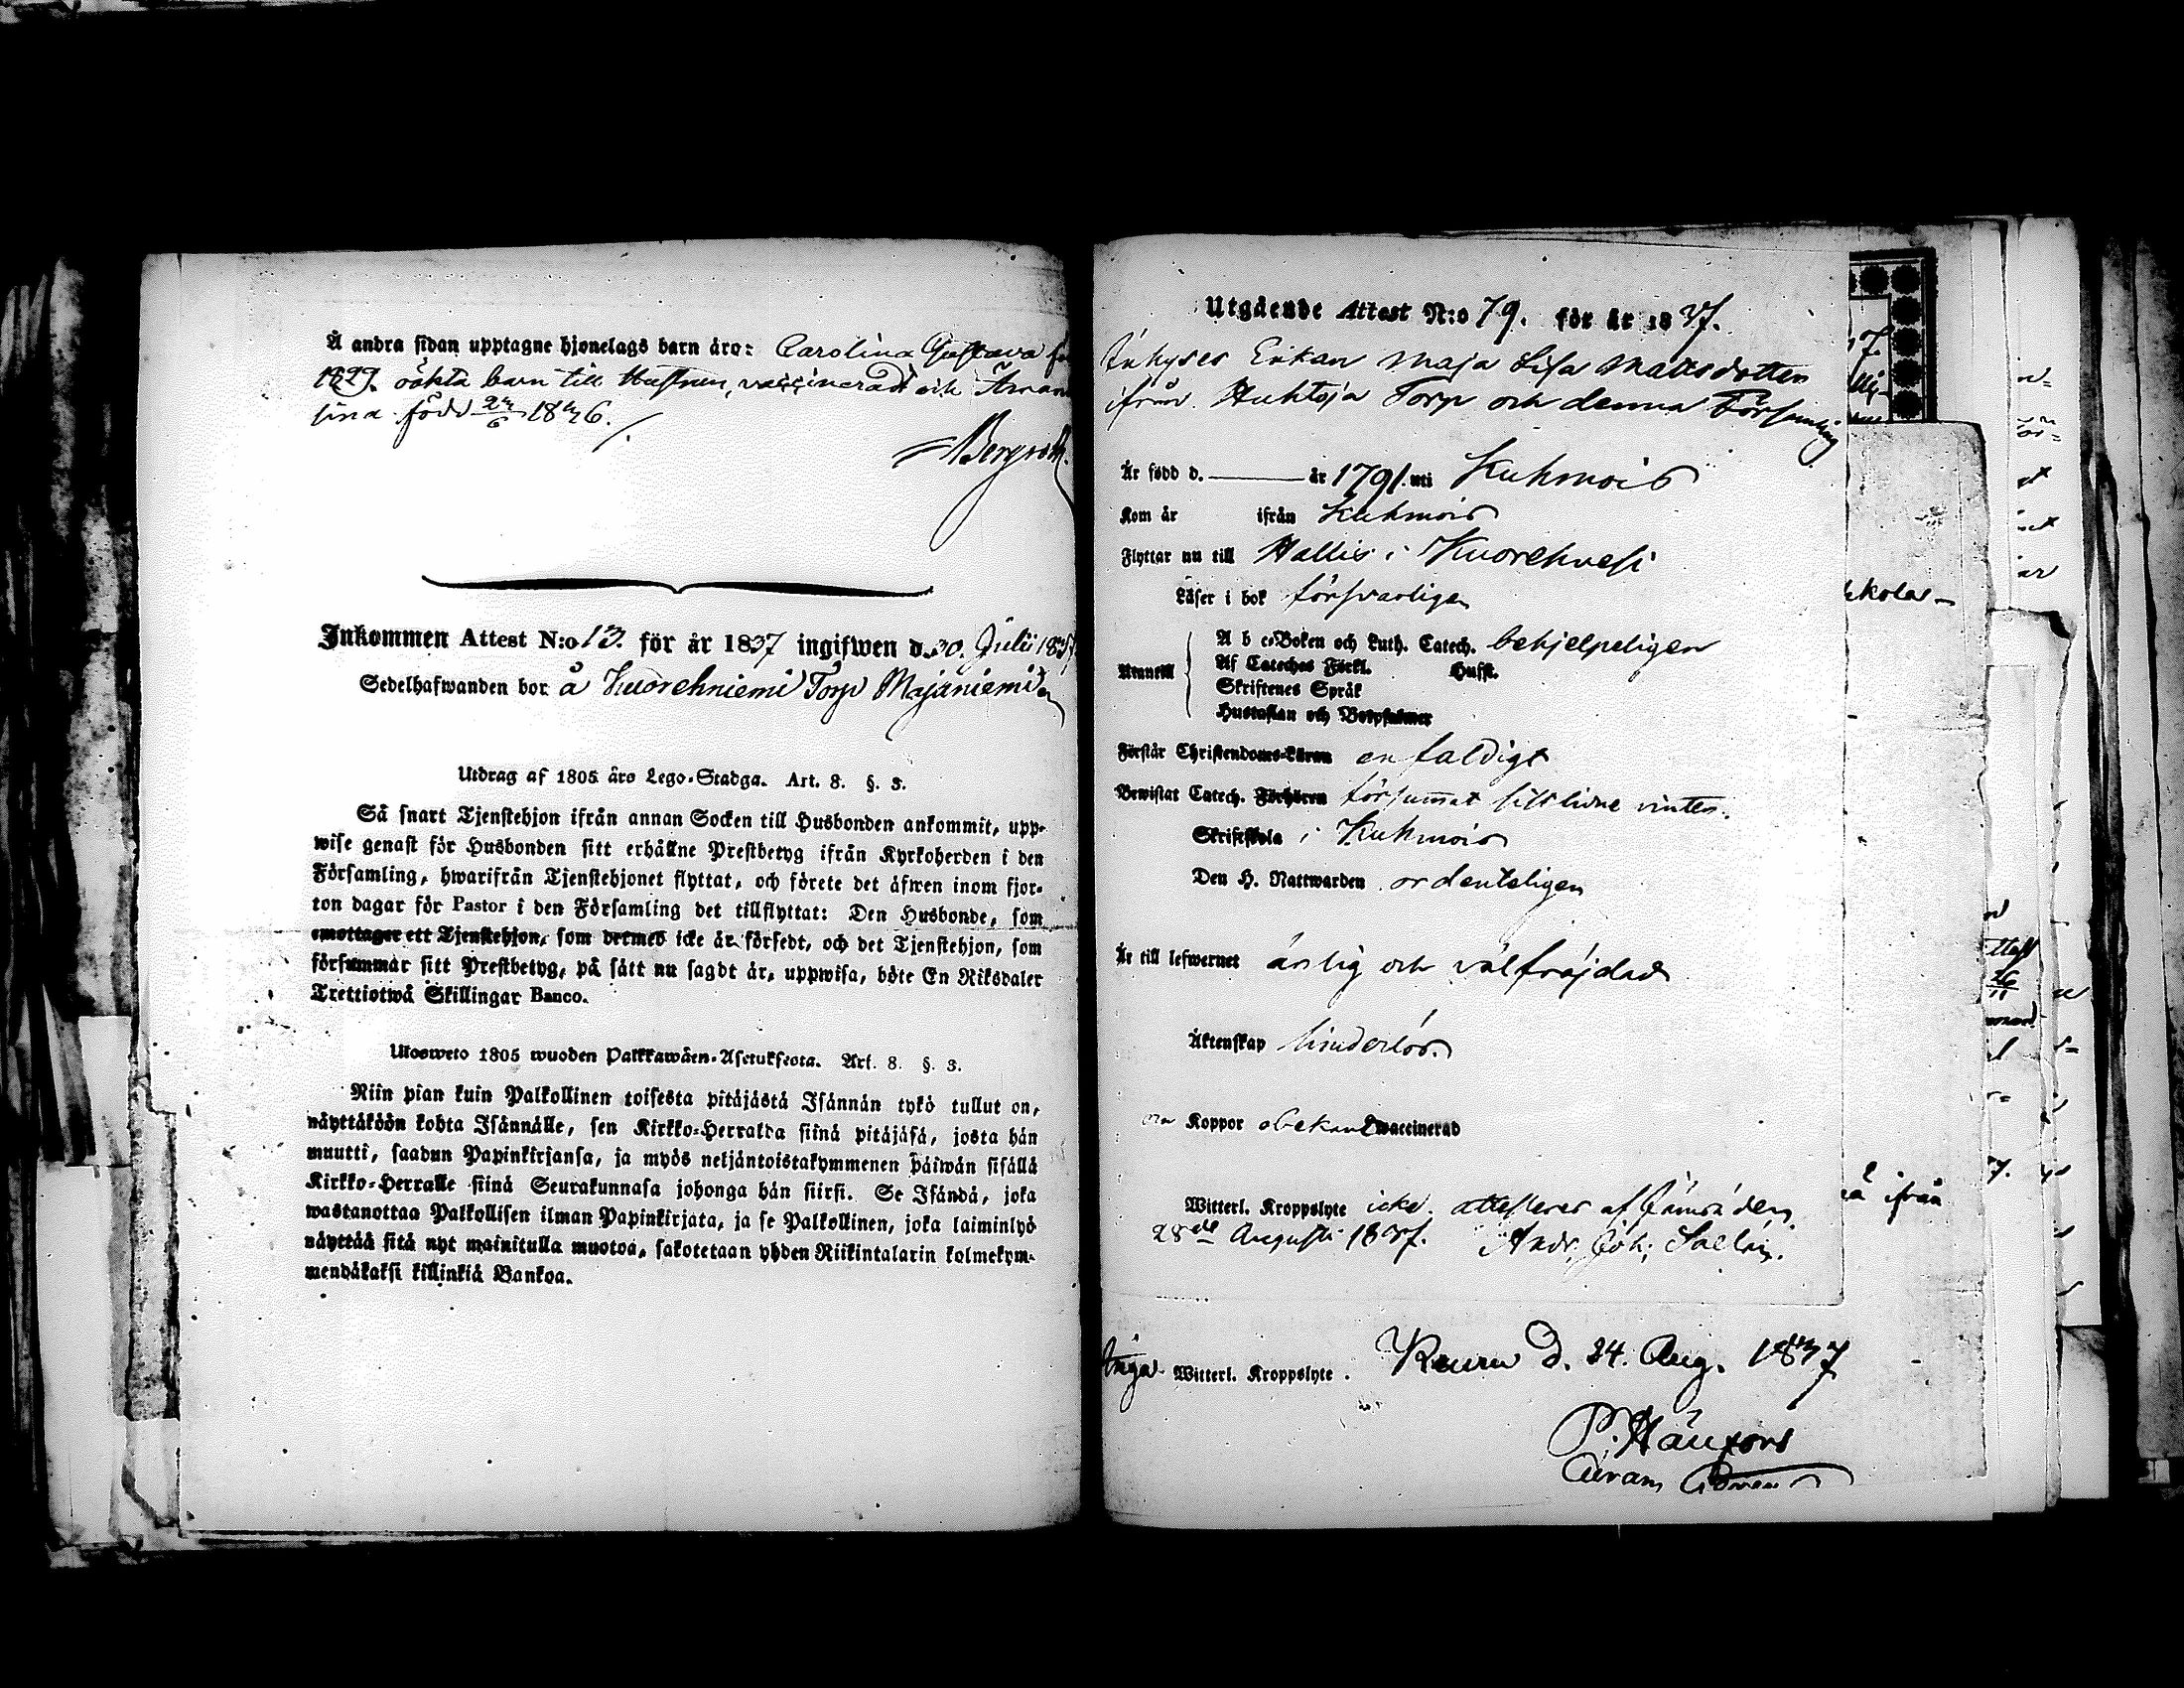 Å andra sidan upptagne hjonelags barn äro: Carolina Gustava
1829. oäkta barn till Hustrun, vaccinerad och
född 2/6 1836.
Bergroth.
Inkommen Attest N:o 13. för år 1837 ingifwen d. 30. Julii 1837
Sedelhafwanden bor å Kuorehniemi Torp Majaniemi
Utdrag af 1805 års Lego-Stadga. Art. 8. §. 3.
Så snart Tjenstehjon ifrån annan Socken till Husbonden ankommit, upp-
wise genast för Husbonden sitt erhållne Prestbetyg ifrån Kyrkoherden i den
Församling, hwarifrån Tjenstehjonet flyttat, och förete det äfwen inom fjor-
ton dagar för Pastor i den Församling det tillflyttat: Den Husbonde, som
emottager ett Tjenstehjon, som dermed icke är försedt, och det Tjenstehjon, som
försummar sitt Prestbetyg, på sätt nu sagdt är, uppwisa, böte En Riksdaler
Trettiotwå Skillingar Banco.
Ulosweto 1805 wuoden Palkkawäen-Asetuksesta. Art. 8. §. 3.
Niin pian kuin Palkollinen toisesta pitäjästä Isännän tykö tullut on,
näyttäköön kohta Isännälle, sen Kirkko-Herralda siinä pitäjäsä, josta hän
muutti, saadun Papinkirjansa, ja myös neljäntoistakymmenen päiwän sisällä
Kirkko-Herralle siinä Seurakunnasa johonga hän siirsi. Se Isändä, joka
wastanottaa Palkollisen ilman Papinkirjata, ja se Palkollinen, joka laiminlyö
näyttää sitä nyt mainitulla muotoa, sakotetaan yhden Riikintalarin kolmekym-
mendäkaksi killinkiä Bankoa.
Utgående Attest N:o 79. för år 1837.
Inhyses Enkan Maja Lisa Mattsdotter
ifrån Huhtoja Torp och denna Församling
Är född d. år 1791. uti Kuhmois
Kom år ifrån Kuhmois
Flyttar nu till Hallis i Kuorehvesi
Läser i bok försvarligen
A b c-Boken och Luth. Catech. behjelpeligen
Utantill Af Cateches Förkl. Husst.
Skriftenes Språk
Hustaflan och Botpsalmer
Förstår Christendoms-Läran enfaldigt
Bewistat Catech. Förhören försummat sistlidne vinter.
Skriftskola i Kuhmois
Den H. Nattwarden ordenteligen
Är till lefwernet ärlig och välfräjdad
Äktenskap hinderlös.
om Koppor obekant waccinerad
Witterl. Kroppslyte icke. attesteras af Jämsä den
28de Augusti 1837. Andr. Joh. Sallén.
Inga Witterl. Kroppslyte. Keuru d. 24. Aug. 1837
P. Hänfors
ifrån